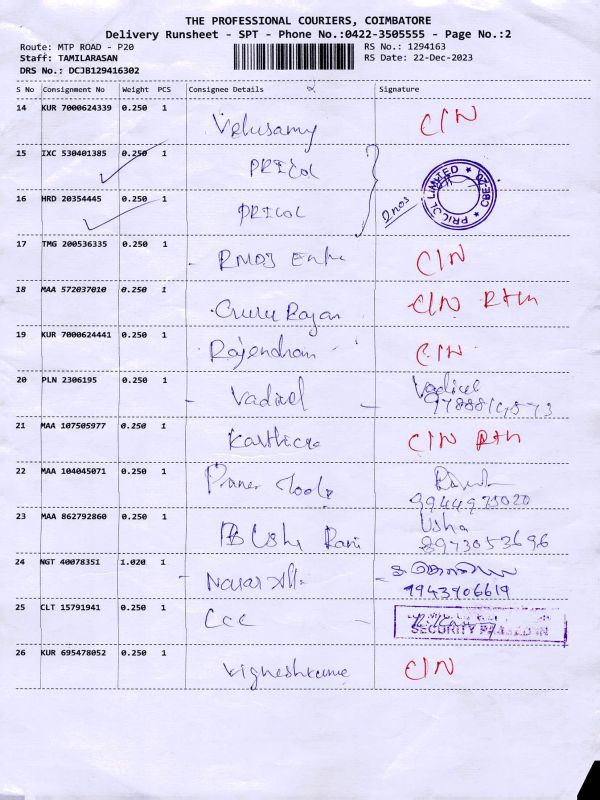 THE PROFESSIONAL COURIERS, COIMBATORE
Delivery Runsheet - SPT - Phone No.:0422-3505555 - Page No.:2
Route: MTP ROAD - P20 RS No.: 1294163
Staff: TAMILARASAN RS Date: 22-Dec-2023
DRS No.: DCJB129416302
S No Consignment No Weight PCS Consignee Details Signature
14 KUR 7000624339 0.250 1 Velusamy CIN
15 IXC 530401385 0.250 1 PRICOL
PRICOL LIMITED CBE-20
16 HRD 20354445 0.250 1 PRICOL 2nos
17 TMG 200536335 0.250 1 CIN
18 MAA 572037010 0.250 1 Guru Rajan CIN RTH
19 KUR 7000624441 0.250 1 Rajendran CIN
20 PLN 2306195 0.250 1 Vadivel Vadivel
21 MAA 107505977 0.250 1 Karthick CIN RTH
22 MAA 104045071 0.250 1 Tools
9944975020
23 MAA 862792860 0.250 1 Usha Rani Usha
8973053696
24 NGT 40078351 1.020 1
9943906619
25 CLT 15791941 0.250 1 CCC
SECURITY
26 KUR 695478052 0.250 1 Vigneshkumar CIN